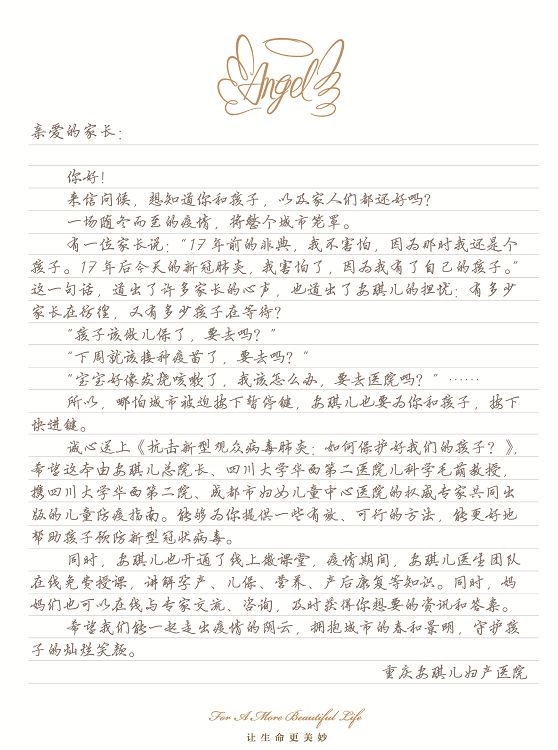 Angel
亲爱的家长：
你好！
来信问候，想知道你和孩子，以及家人们都还好吗？
一场随冬而至的疫情，将整个城市笼罩。
有一位家长说：“17年前的非典，我不害怕，因为那时我还是个
孩子。17年后今天的新冠肺炎，我害怕了，因为我有了自己的孩子。”
这一句话，道出了许多家长的心声，也道出了安琪儿的担忧：有多少
家长在彷徨，又有多少孩子在等待？
“孩子该做儿保了，要去吗？”
“下周就该接种疫苗了，要去吗？”
“宝宝好像发烧咳嗽了，我该怎么办，要去医院吗？”……
所以，哪怕城市被迫按下暂停键，安琪儿也要为你和孩子，按下
快进键。
诚心送上《抗击新型冠状病毒肺炎：如何保护好我们的孩子？》，
希望这本由安琪儿总院长、四川大学华西第二医院儿科学毛萌教授，
携四川大学华西第二院、成都市妇女儿童中心医院的权威专家共同出
版的儿童防疫指南。能够为你提供一些有效、可行的方法，能更好地
帮助孩子预防新型冠状病毒。
同时，安琪儿也开通了线上微课堂，疫情期间，安琪儿医生团队
在线免费授课，讲解孕产、儿保、营养、产后康复等知识。同时，妈
妈们也可以在线与专家交流、咨询，及时获得你想要的资讯和答案。
希望我们能一起走出疫情的阴云，拥抱城市的春和景明，守护孩
子的灿烂笑颜。
重庆安琪儿妇产医院
For A More Beautiful Life
让生命更美妙